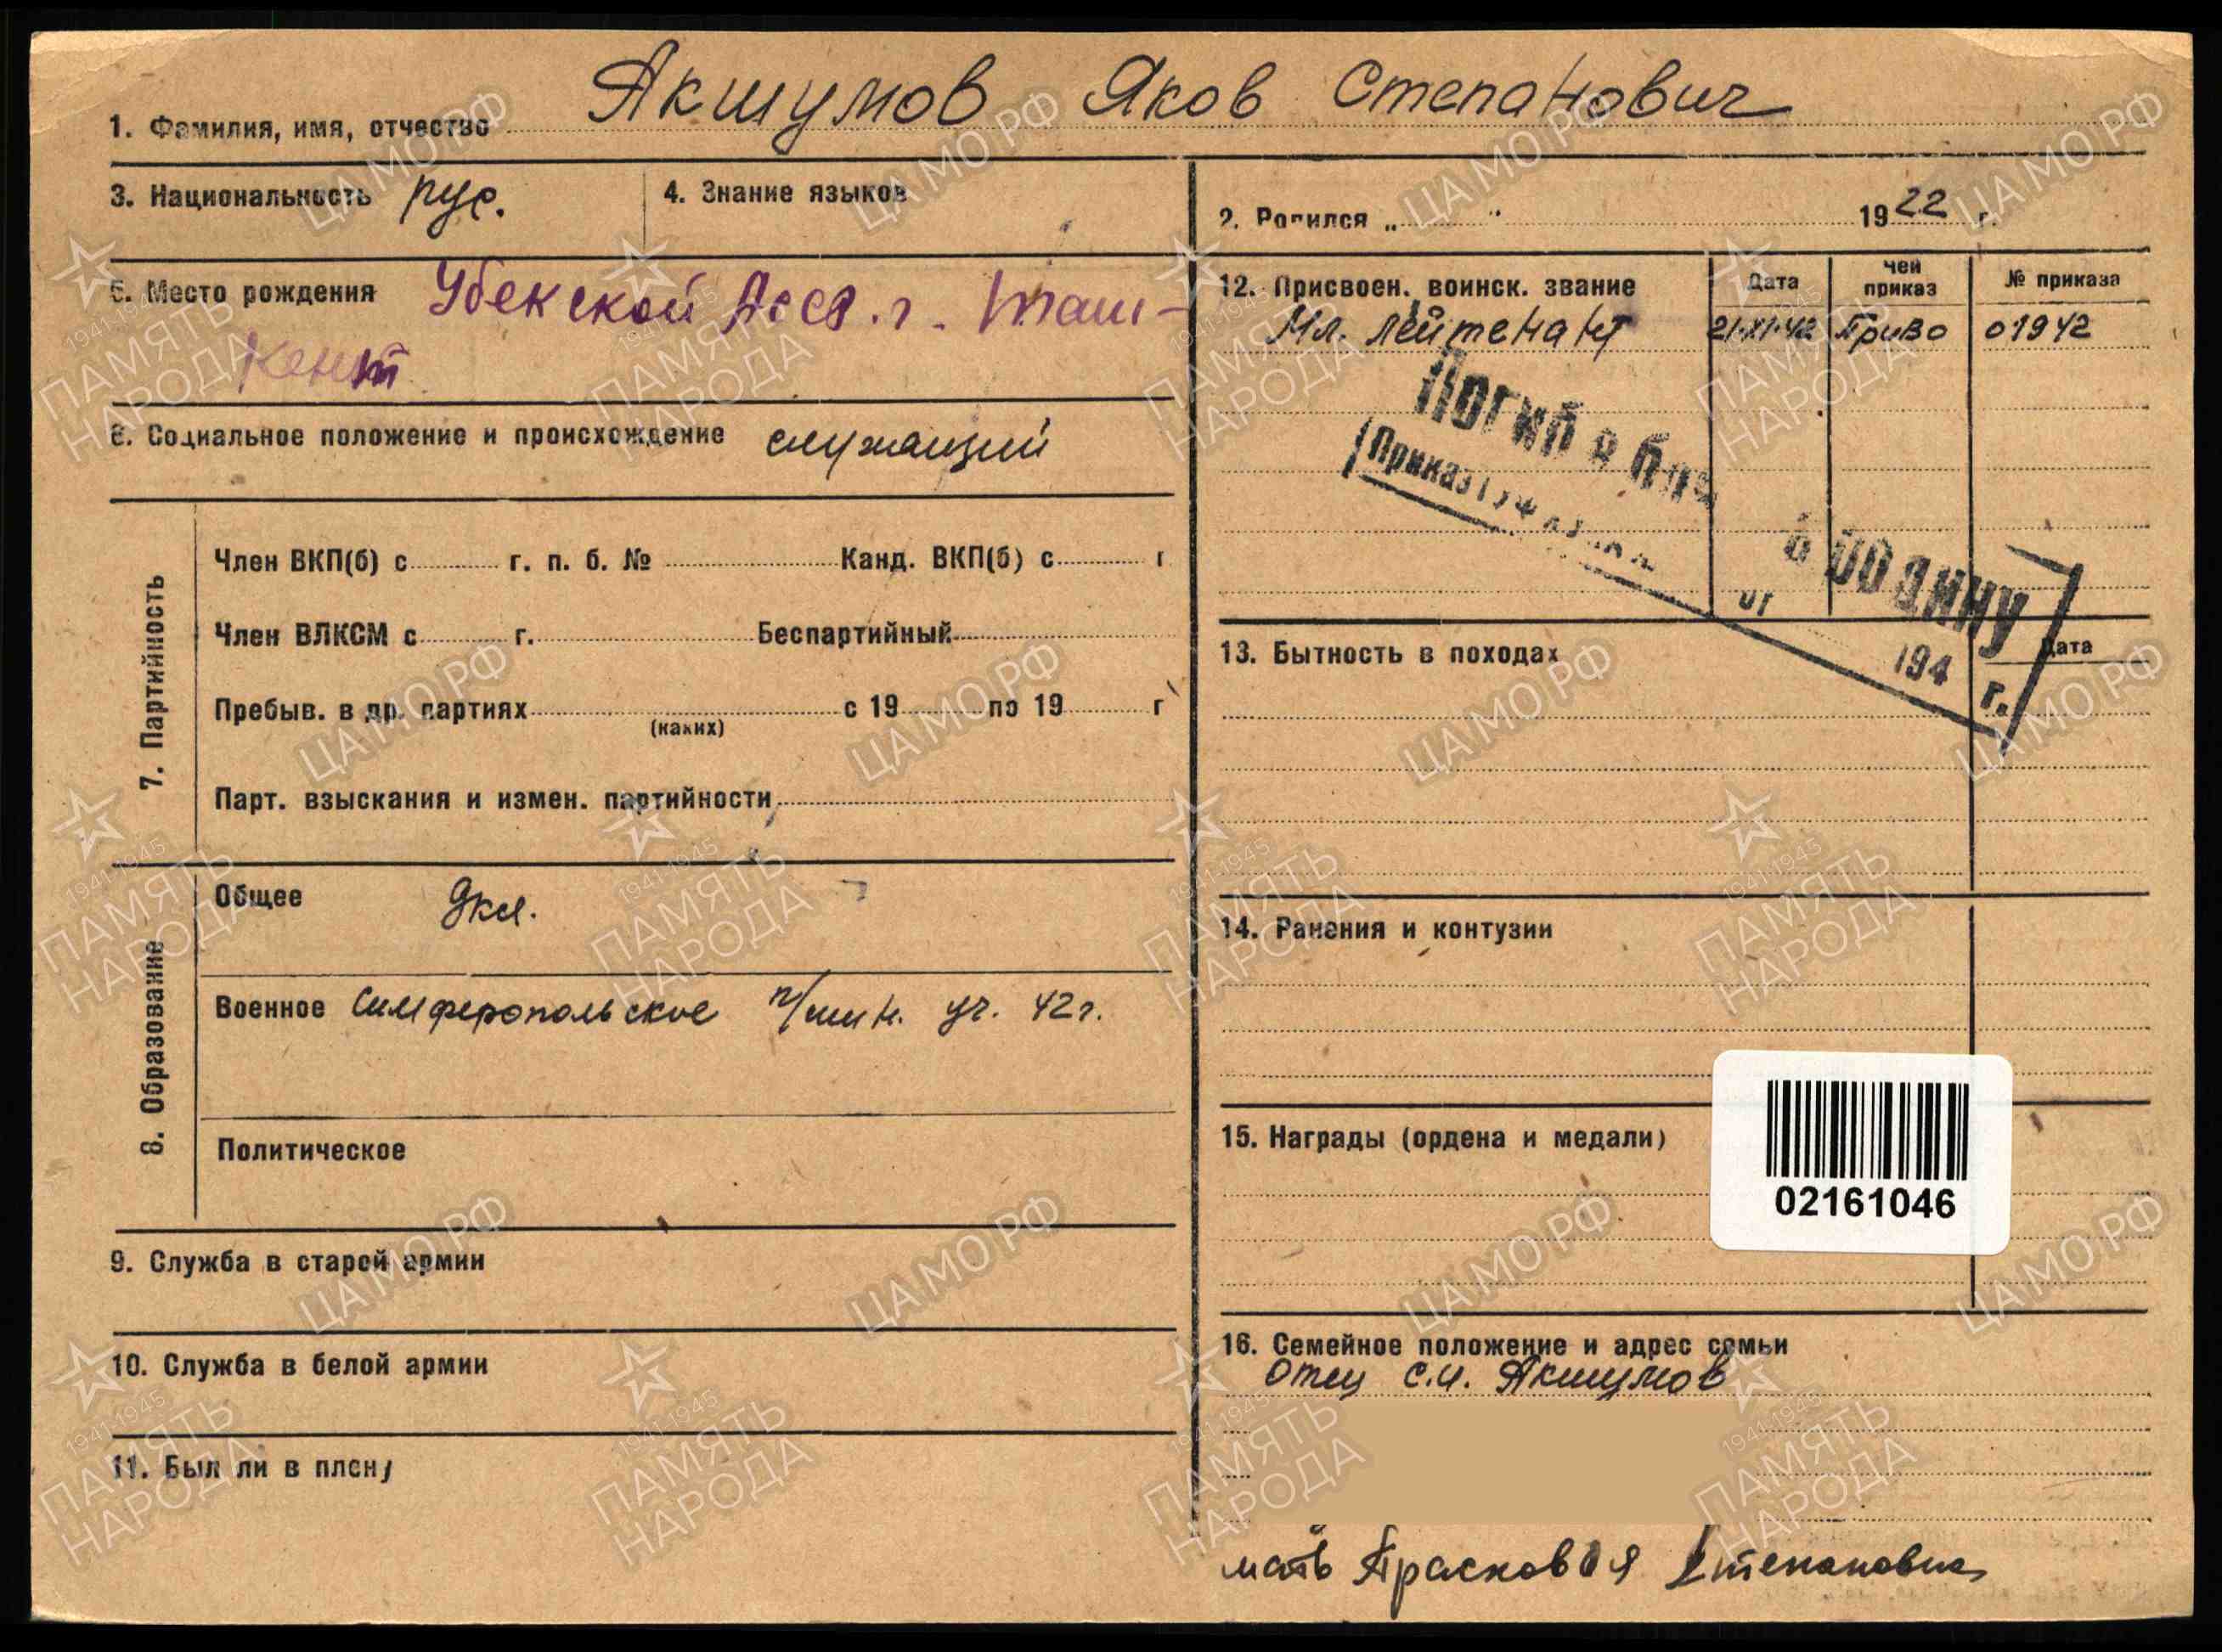 1. Фамилия, имя, отчество Акшумов Яков Степанович
3. Национальность рус.
4. Знание языков
2. Родился „ " 1922 г.
5. Место рождения Убекской Асср. г. Таш-
кент
6. Социальное положение и происхождение служащий
7. Партийность
Член ВКП(б) с г. п. б. № Канд. ВКП(б) с г
Член ВЛКСМ с г. Беспартийный
Пребыв. в др. партиях с 19 по 19 г
(каких)
Парт. взыскания и измен. партийности
8. Образование
Общее 9кл.
Военное Симферопольское п/мин. уч. 42г.
Политическое
9. Служба в старой армии
10. Служба в белой армии
11. Был ли в плену
12. Присвоен. воинск. звание Дата чей приказ № приказа
Мл. лейтенант 21.XI.42 Приво 01942
Погиб в бою
Приказ
за родину
от 194 г.
13. Бытность в походах Дата
14. Ранения и контузии
15. Награды (ордена и медали)
02161046
16. Семейное положение и адрес семьи
Отец С.И. Акшумов
мать Прасковья Степановна
ЦАМО.РФ
1941-1945
ПАМЯТЬ
НАРОДА